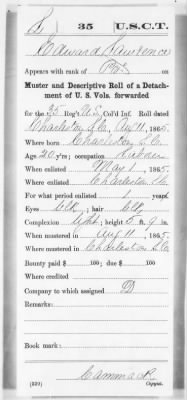 L 35 U.S.C.T.
Edward Lawrence
Appears with rank of Pvt on
Muster and Descriptive Roll of a Detach-
ment of U. S. Vols. forwarded
for the 35 Reg't U.S. Col'd Inf. Roll dated
Charleston S.C. Aug 11, 1865.
Where born Charleston S.C.
Age 20 y'rs; occupation Laborer
When enlisted May 1, 1865.
Where enlisted Charleston S.C.
For what period enlisted 1 years.
Eyes blk; hair blk
Complexion light; height 5 ft. 9 in.
When mustered in Aug 11, 1865.
Where mustered in Charleston S.C.
Bounty paid $ 100; due $ 100
Where credited
Company to which assigned D
Remarks:
Book mark:
Cammack
(339) Copyist.